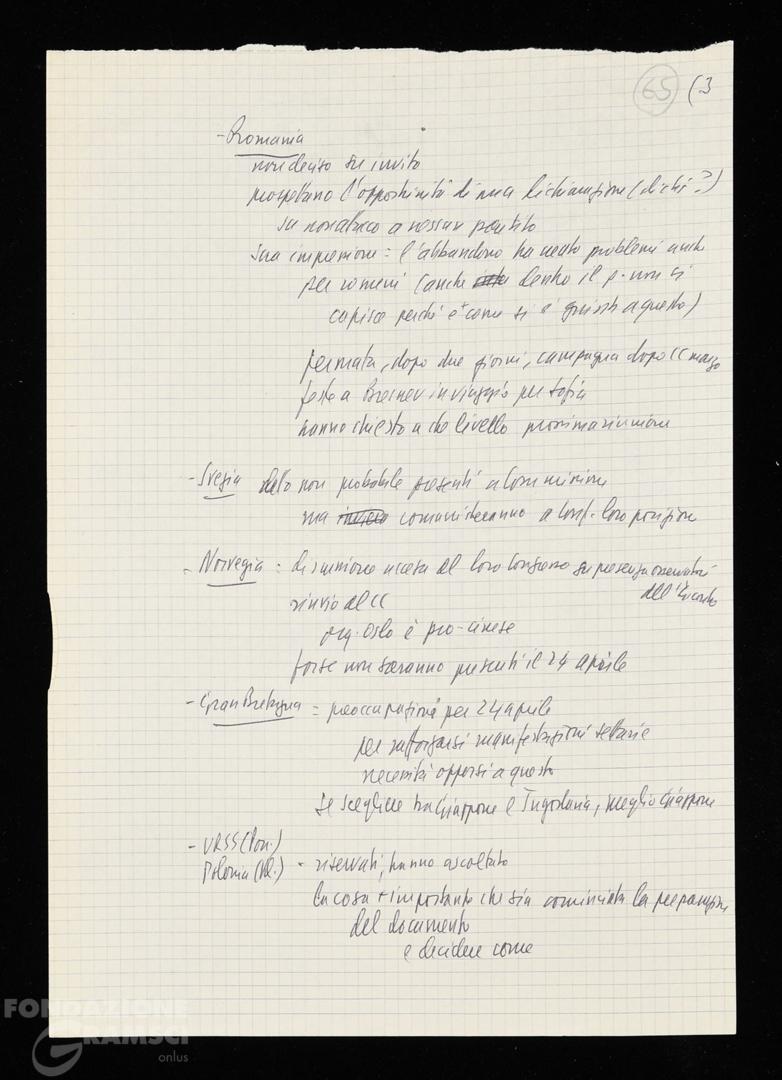 65 (3
- Romania
non deciso su invito
prospettano l'opportunità di una dichiarazione (di chi?)
su non attacco a nessun partito
sua impressione: l'abbandono ha creato problemi anche
per romeni (anche dentro il p. non si
capisce perché e come si è giunti a questo)
fermata, dopo due giorni, campagna dopo CC marzo
feste a Breznev in viaggio per Sofia
hanno chiesto a che livello prossima riunione
- Svezia detto non probabile presenti a comm. riunione
ma comunicheranno a conf. loro posizione
- Norvegia: discussione accesa al loro Congresso su presenza osservatori
all'incontro
rinvio al CC
org. Oslo è pro-cinese
forse non saranno presenti il 24 aprile
- Gran Bretagna = preoccupazione per 24 aprile
per rafforzarsi manifestazioni settarie
necessità opporsi a questo
se scegliere tra Giappone e Jugoslavia, meglio Giappone
- URSS (Pon.)
Polonia (Kl.) - riservati, hanno ascoltato
la cosa + importante che sia cominciata la preparazione
del documento
e decidere come
FONDAZIONE
GRAMSCI
onlus